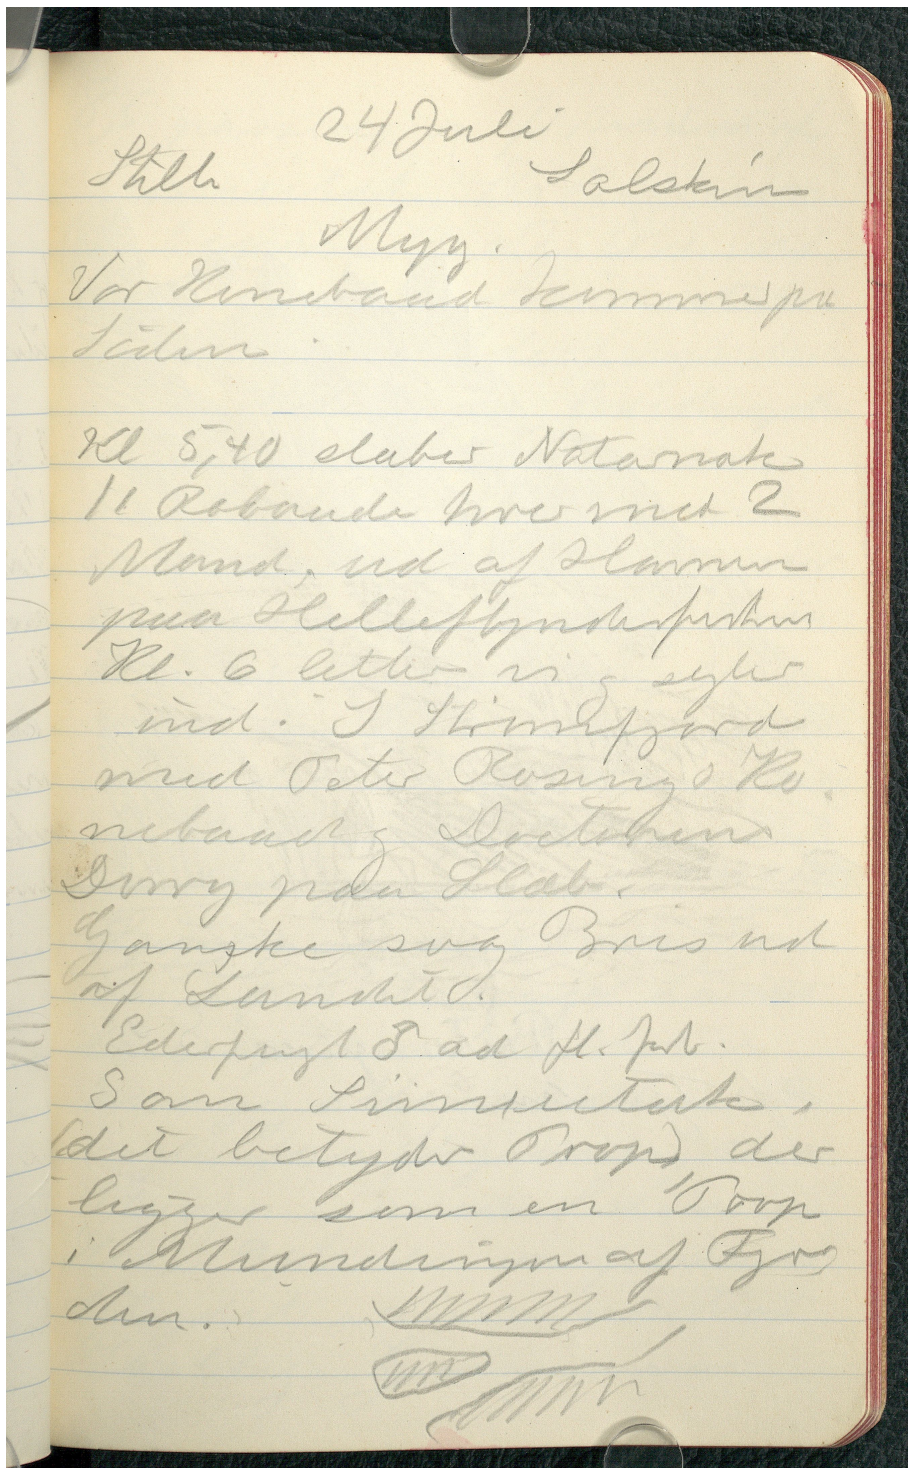 24 Juli
Stille Solskin
Myg.
Vor Konebaad kommer paa
Siden.
Kl 5,40 slæber Natarnak
11 Robaade hver med 2
Mand, ud af Havnen
paa Helleflynderfiskeri
Kl. 6 letter vi og sejler
ind. I Strømfjord
med Peter Rosings Ko
nebaad og Doctorens
Dorry paa Slæb.
Ganske svag Bris ud
af Landet.
Ederfugl 8 ad fl. forb.
San Simiutak,
(det betyder Prop) der
ligger som en Prop
i Mundingen af Fjor
den.